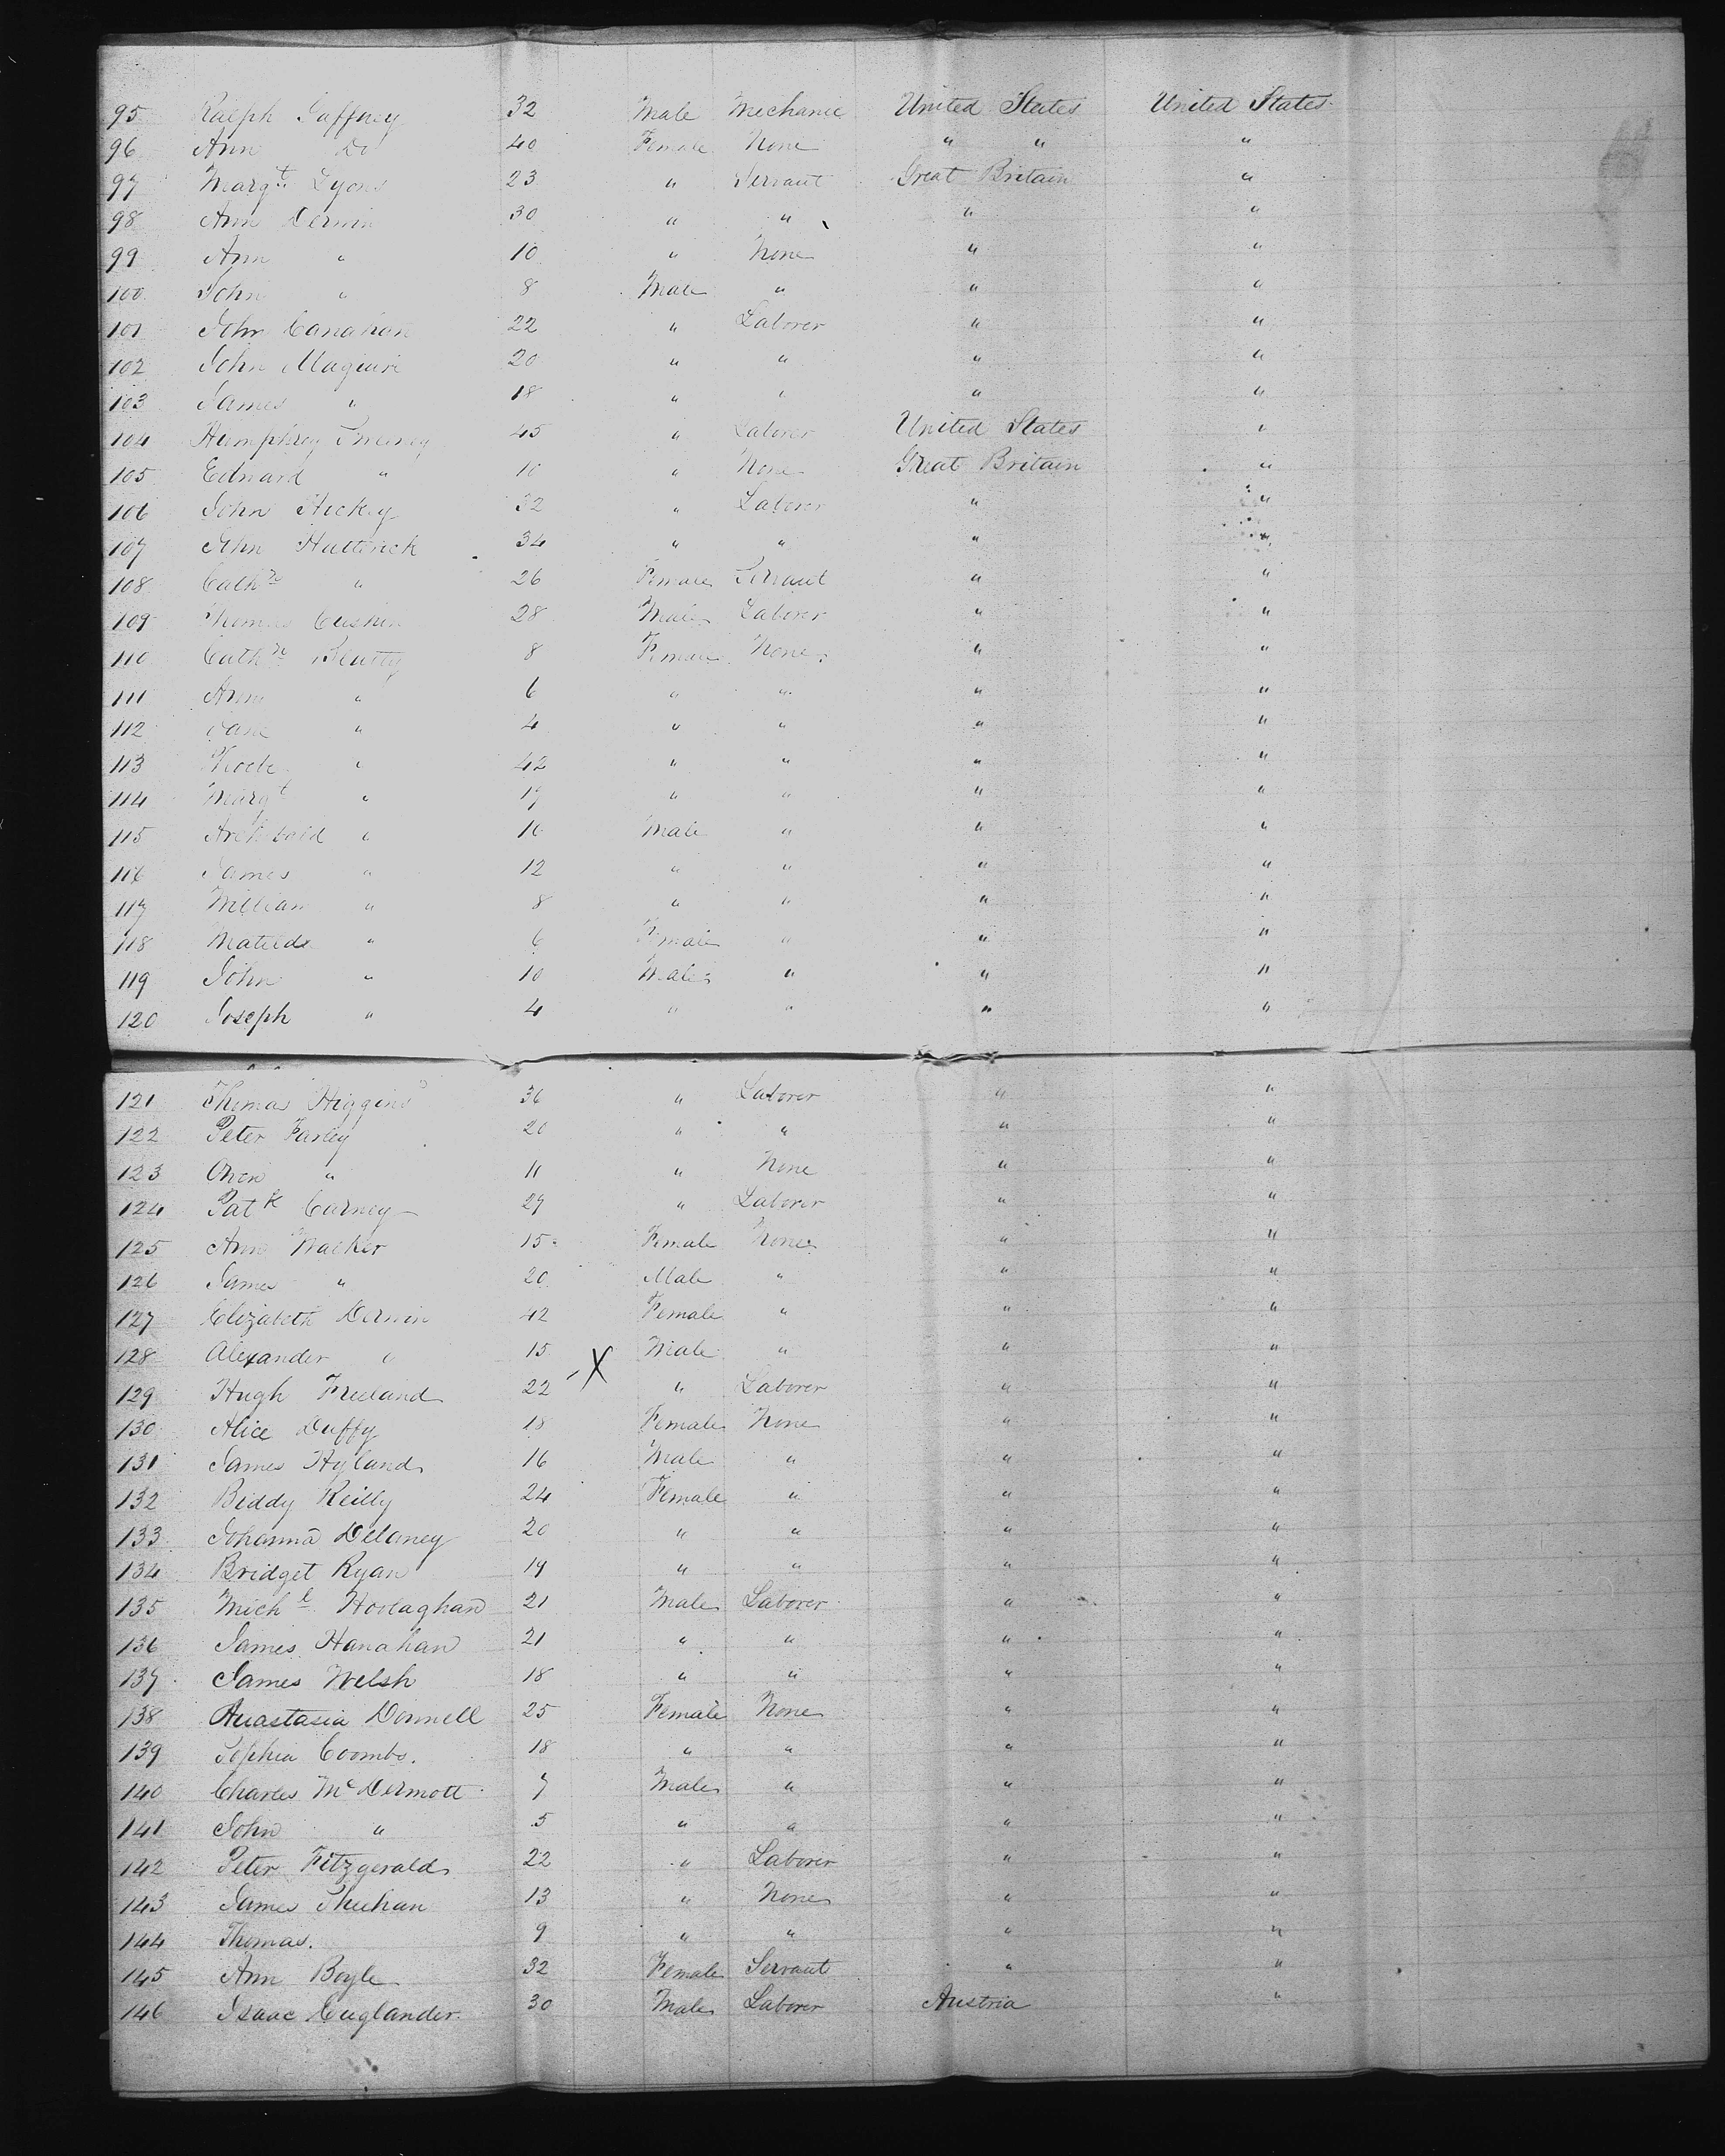 95 Ralph Gaffney 32 Male Mechanic United States United States
96 Ann Do 40 Female None " " "
97 Margt Lyons 23 " Servant Great Britain "
98 Ann Dernin 30 " " " "
99 Ann " 10 " None " "
100 John " 8 Male " " "
101 John Canahan 22 " Laborer " "
102 John Maguire 20 " " " "
103 James " 18 " " " "
104 Humphrey Sweeney 45 " Laborer United States "
105 Edward " 10 " None Great Britain "
106 John Hickey 32 " Laborer " "
107 John Hutterick 34 " " " "
108 Cathne " 26 Female Servant " "
109 Thomas Cushin 28 Male Laborer " "
110 Cathne Beatty 8 Female None " "
111 Ann " 6 " " " "
112 Jane " 4 " " " "
113 Phoebe " 42 " " " "
114 Margt " 17 " " " "
115 Archibald " 16 Male " " "
116 James " 12 " " " "
117 William " 8 " " " "
118 Matilda " 6 Female " " "
119 John " 10 Male " " "
120 Joseph " 4 " " " "
121 Thomas Higgins 36 " Laborer " "
122 Peter Farley 20 " " " "
123 Owen " 11 " None " "
124 Patk Carney 29 " Laborer " "
125 Ann Walker 15 Female None " "
126 James " 20 Male " " "
127 Elizabeth Dernin 42 Female " " "
128 Alexander " 15 Male " " "
129 Hugh Freeland 22 X " Laborer " "
130 Alice Duffy 18 Female None " "
131 James Hyland 16 Male " " "
132 Biddy Reilly 24 Female " " "
133 Johanna Delaney 20 " " " "
134 Bridget Ryan 19 " " " "
135 Michl Hoolaghan 21 Male Laborer " "
136 James Hanahan 21 " " " "
137 James Welsh 18 " " " "
138 Anastasia Donnell 25 Female None " "
139 Sophia Coombs. 18 " " " "
140 Charles McDermott 7 Male " " "
141 John " 5 " " " "
142 Peter Fitzgerald 22 " Laborer " "
143 James Sheehan 13 " None " "
144 Thomas. 9 " " " "
145 Ann Boyle 32 Female Servant " "
146 Isaac Englander. 30 Male Laborer Austria "